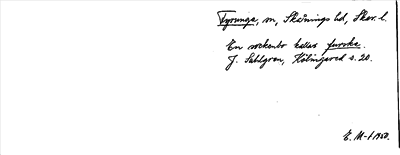 Fyrunga, sn, Skånings hd, Skar. l.
En sockenbo kallas furska.
J. Sahlgren, Hälsingared s. 20.
E. M-t 1950.